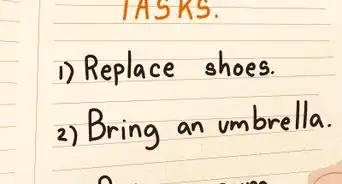 TASKS.
1) Replace shoes.
2) Bring an umbrella.